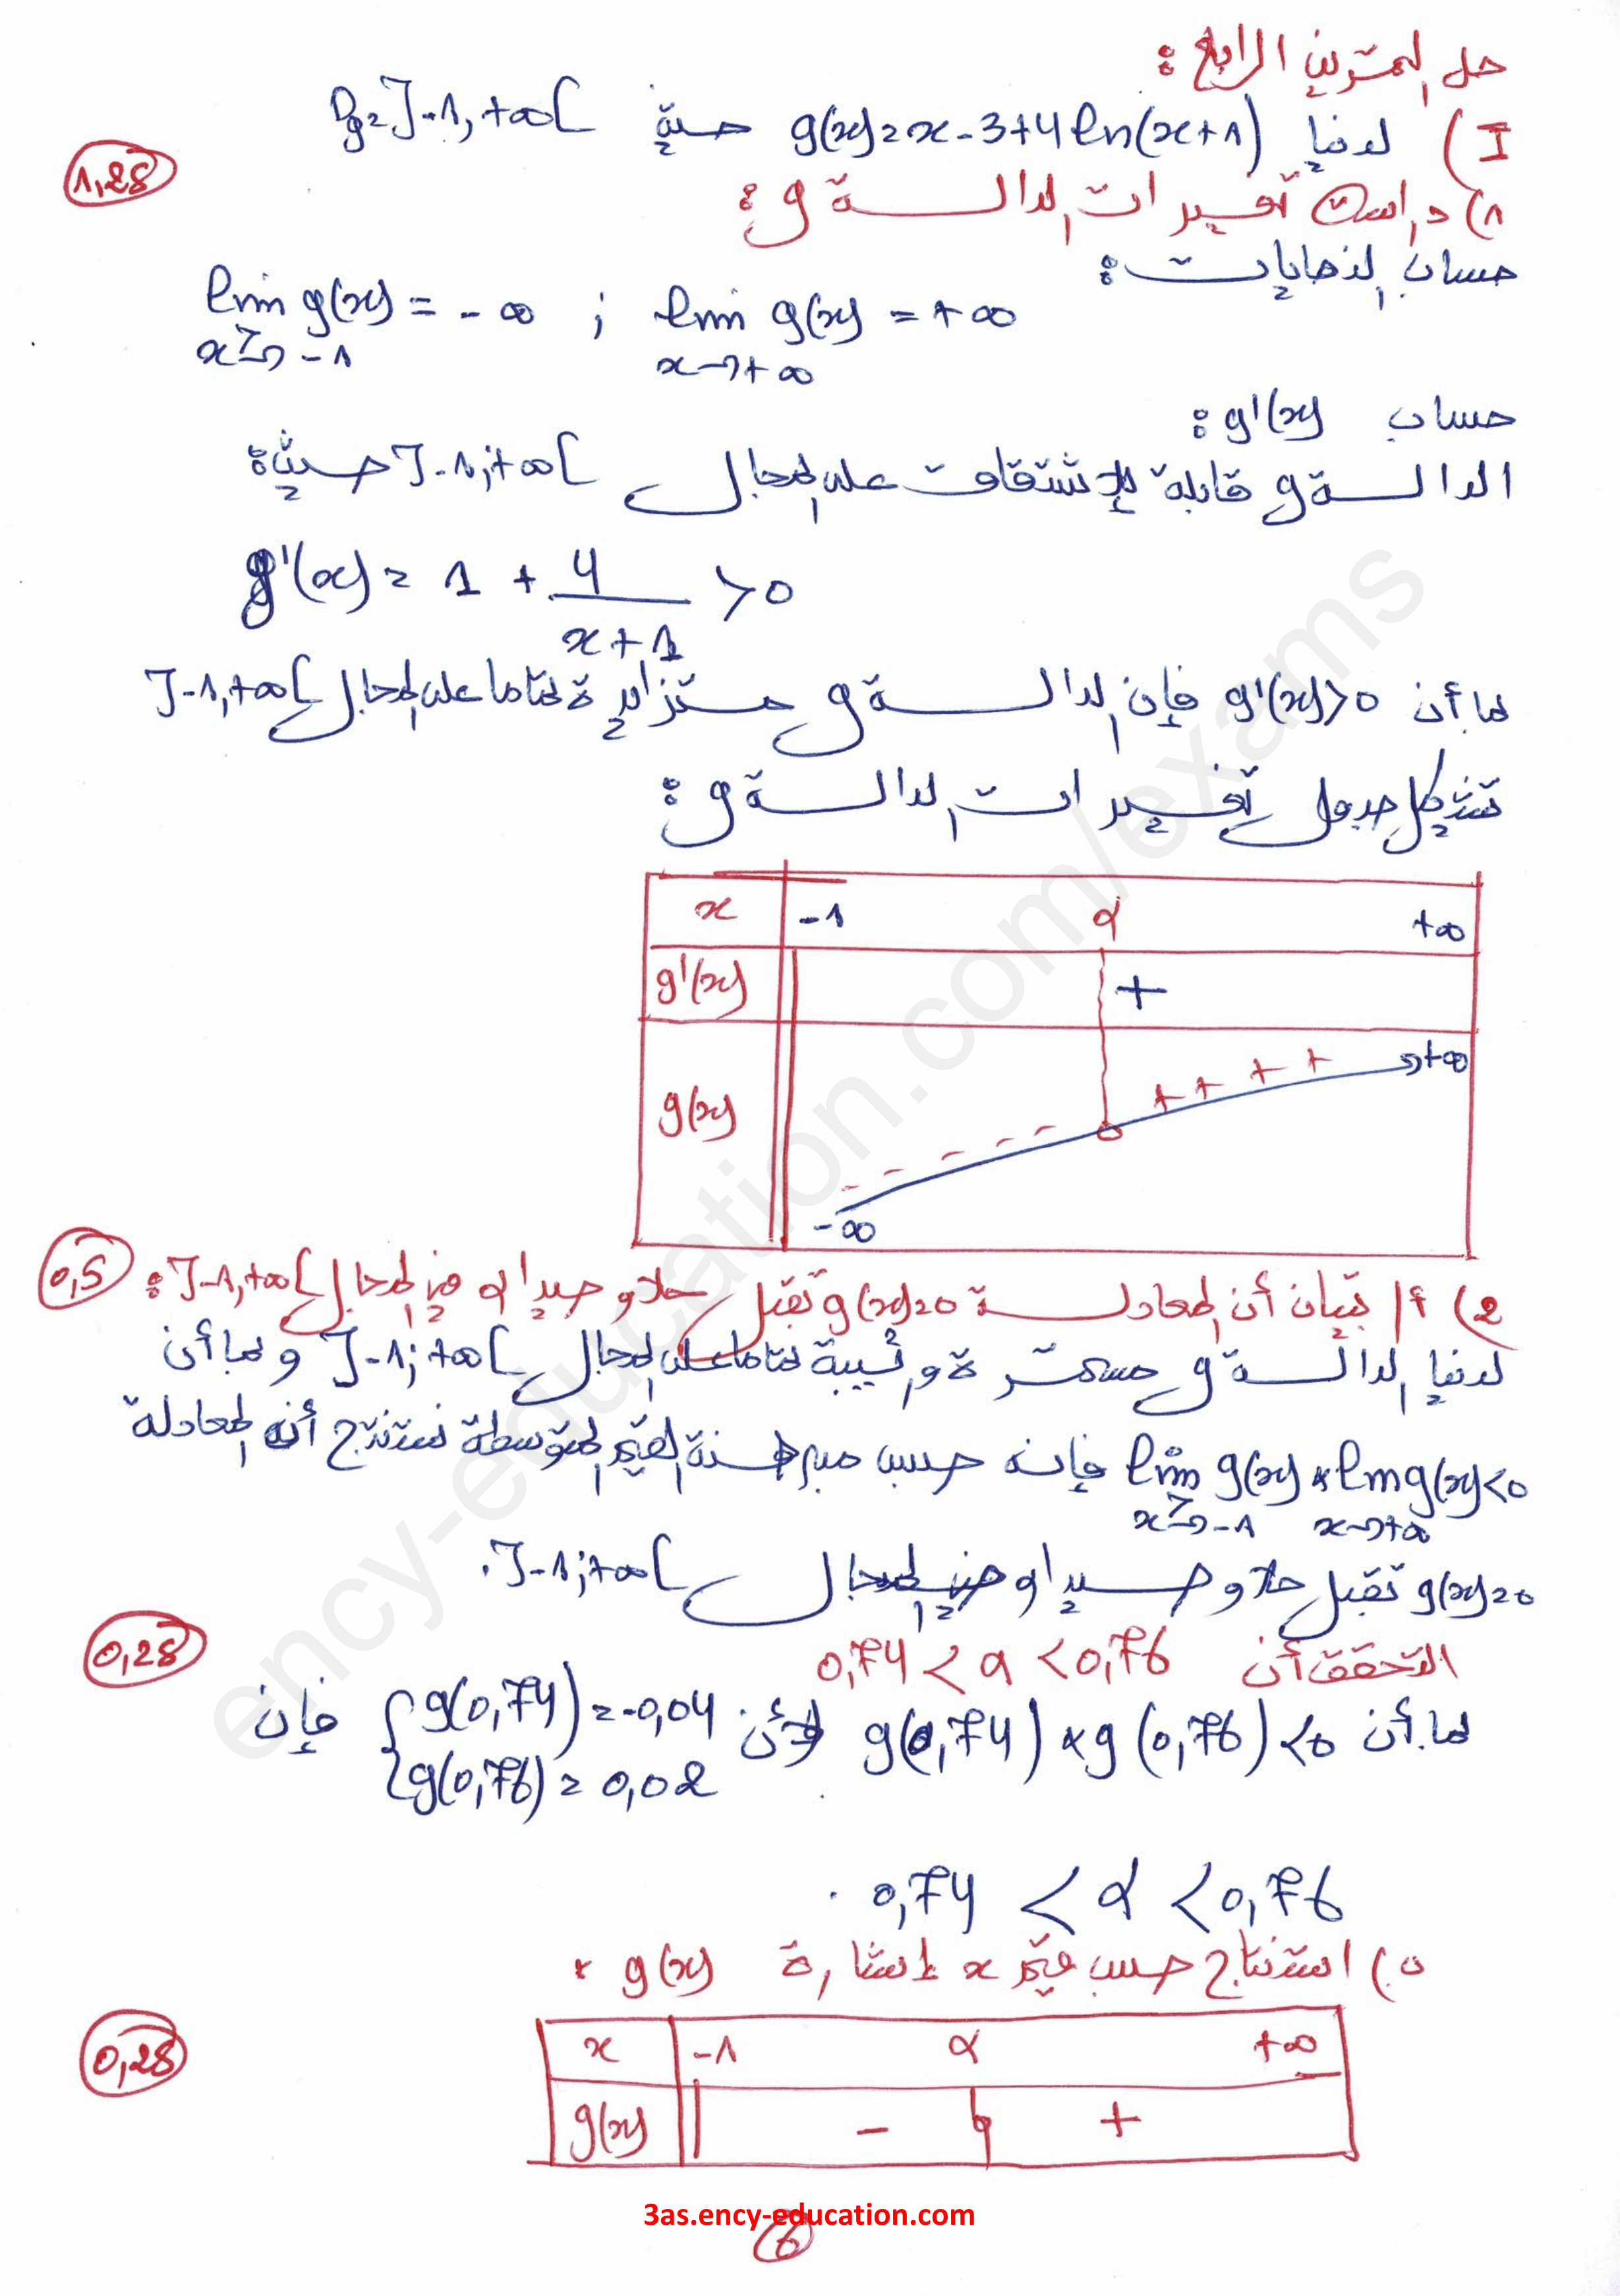 حل التمرين الرابع :
I) لدينا g(x)=x-3+4ln(x+1) حيث Dg=]-1,+∞[
1,25
1) دراسة تغيرات الدالة g :
حساب النهايات :
lim g(x) = -∞ ; lim g(x) = +∞
x→>-1 x→+∞
حساب g'(x) :
الدالة g قابلة للإشتقاق على المجال ]-1;+∞[ حيث :
g'(x) = 1 + 4/(x+1) >0
بما أن g'(x)>0 فإن الدالة g متزايدة تماما على المجال ]-1,+∞[
تشكيل جدول تغيرات الدالة g :
x -1 α +∞
g'(x) +
g(x) -∞ - - - - - 0 + + + + +∞
0,5
2) أ/ تبيان أن المعادلة g(x)=0 تقبل حلا وحيدا α في المجال ]-1,+∞[ :
لدينا الدالة g مستمرة ورتيبة تماما على المجال ]-1;+∞[ وبما أن
lim g(x) × lim g(x)<0 فإنه حسب مبرهنة القيم المتوسطة نستنتج أن المعادلة
x→>-1 x→+∞
g(x)=0 تقبل حلا وحيدا في المجال ]-1;+∞[.
0,25
التحقق أن 0,74 < α < 0,76
بما أن g(0,74) × g(0,76) <0 لأن {g(0,74)=-0,04 فإن
g(0,76)=0,02
0,74 < α < 0,76 .
ب) استنتاج حسب قيم x إشارة g(x) :
0,25
x -1 α +∞
g(x) - 0 +
3as.ency-education.com
6
ency-education.com/exams